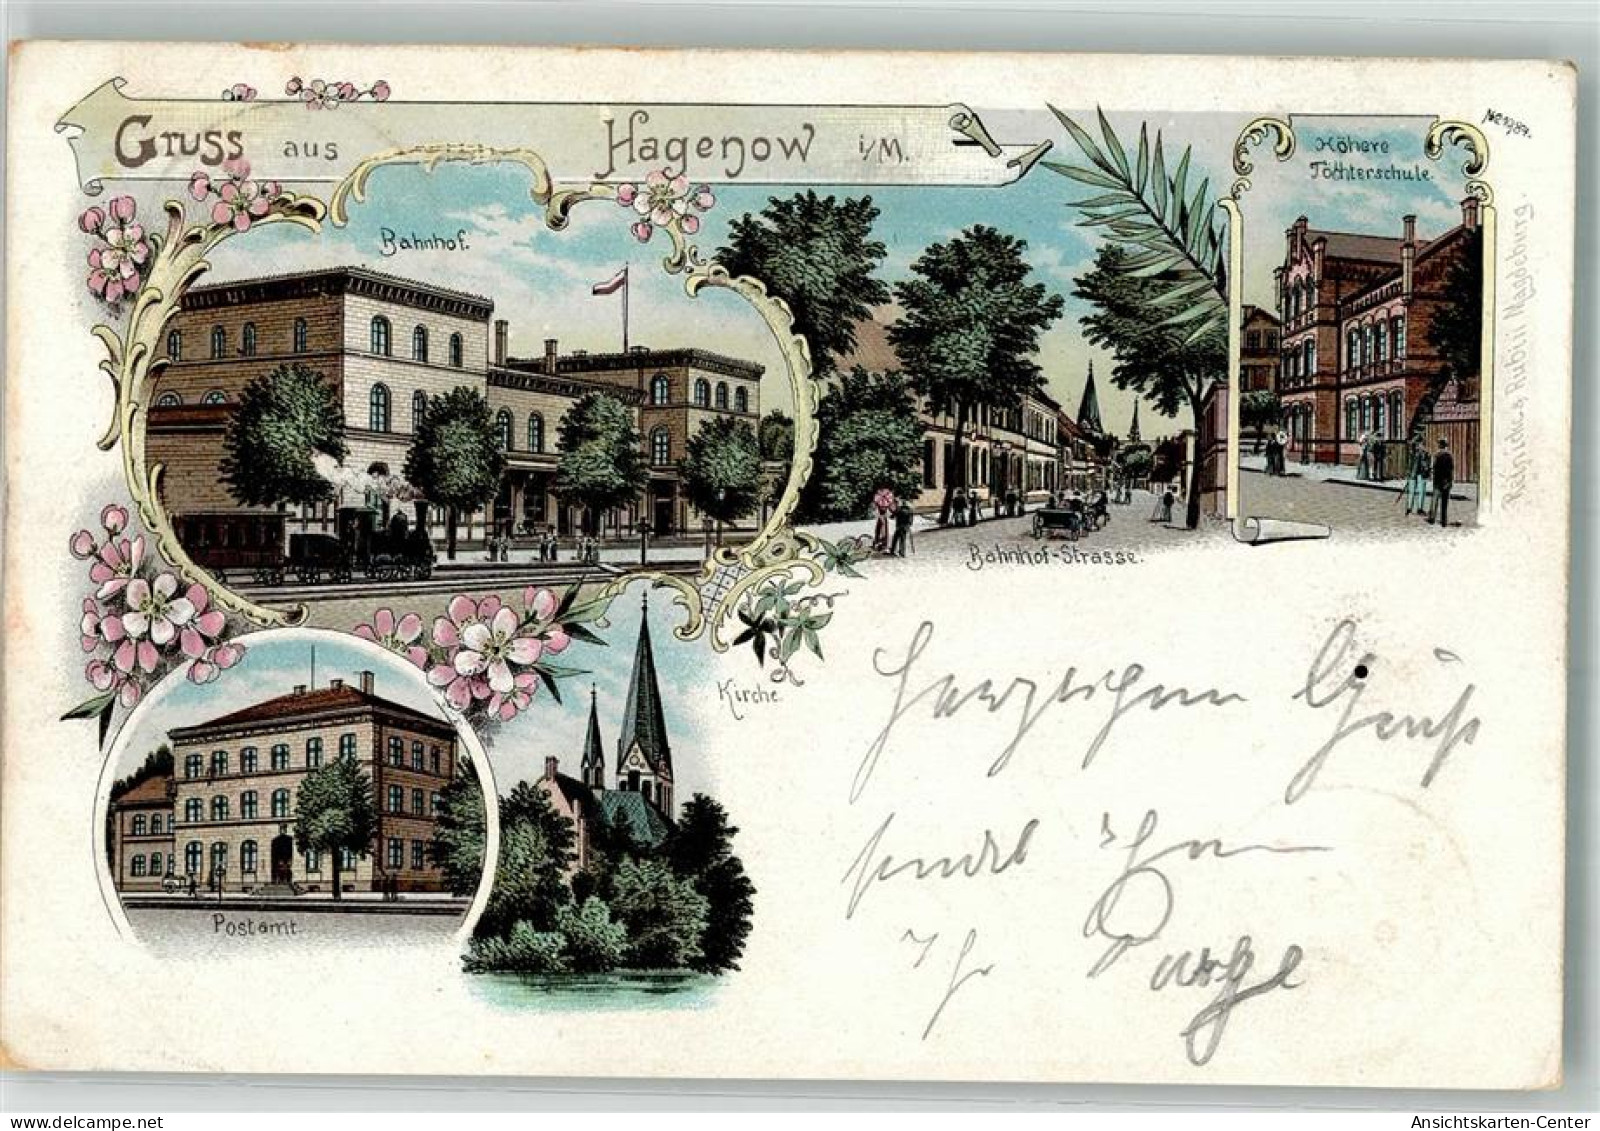 Gruss aus Hagenow i/M.
No 1984.
Höhere
Töchterschule.
Bahnhof.
Bahnhof-Strasse.
Kirche.
Postamt.
Rubin Magdeburg.
Herzlichen Gruß
sendet Ihnen
Ihr
Ansichtskarten-Center